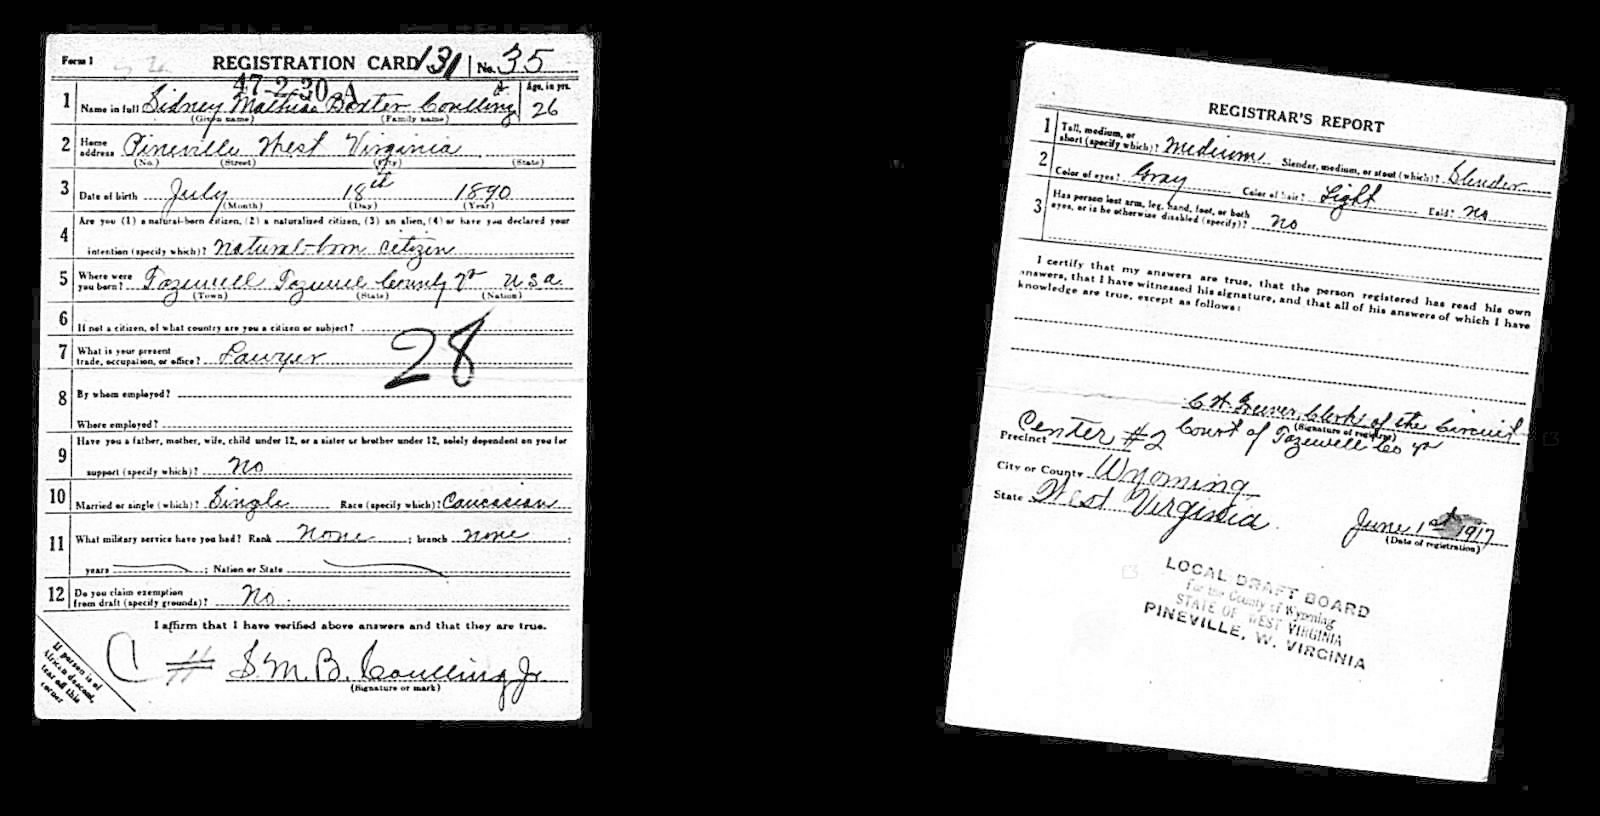 Form 1 REGISTRATION CARD 131 No. 35
47-2-30 A
1 Name in full Sidney Mathias Boxter Coulling Jr. Age, in yrs. 26
(Given name) (Family name)
2 Home address Pineville West Virginia
(No.) (Street) (City) (State)
3 Date of birth July 18th 1890
(Month) (Day) (Year)
Are you (1) a natural-born citizen, (2) a naturalized citizen, (3) an alien, (4) or have you declared your
4 intention (specify which)? Natural-born citizen
5 Where were you born? Tazewell Tazewell County Va USA
(Town) (State) (Nation)
6 If not a citizen, of what country are you a citizen or subject?
28
7 What is your present trade, occupation, or office? Lawyer
8 By whom employed?
Where employed?
Have you a father, mother, wife, child under 12, or a sister or brother under 12, solely dependent on you for
9 support (specify which)? No
10 Married or single (which)? Single Race (specify which)? Caucasian
11 What military service have you had? Rank None ; branch none ;
years ; Nation or State
12 Do you claim exemption from draft (specify grounds)? No.
I affirm that I have verified above answers and that they are true.
S. M. B. Coulling Jr
(Signature or mark)
If person is of
African descent,
tear off this
corner
REGISTRAR'S REPORT
1 Tall, medium, or short (specify which)? Medium Slender, medium, or stout (which)? Slender
2 Color of eyes? Gray Color of hair? Light Bald? No
3 Has person lost arm, leg, hand, foot, or both eyes, or is he otherwise disabled (specify)? No
I certify that my answers are true, that the person registered has read his own
answers, that I have witnessed his signature, and that all of his answers of which I have
knowledge are true, except as follows:
C. H. Greever, Clerk of the Circuit
(Signature of registrar)
Court of Tazewell Co Va
Precinct Center #2
City or County Wyoming
State West Virginia
June 1st 1917
(Date of registration)
LOCAL DRAFT BOARD
for the County of Wyoming
STATE OF WEST VIRGINIA
PINEVILLE, W. VIRGINIA